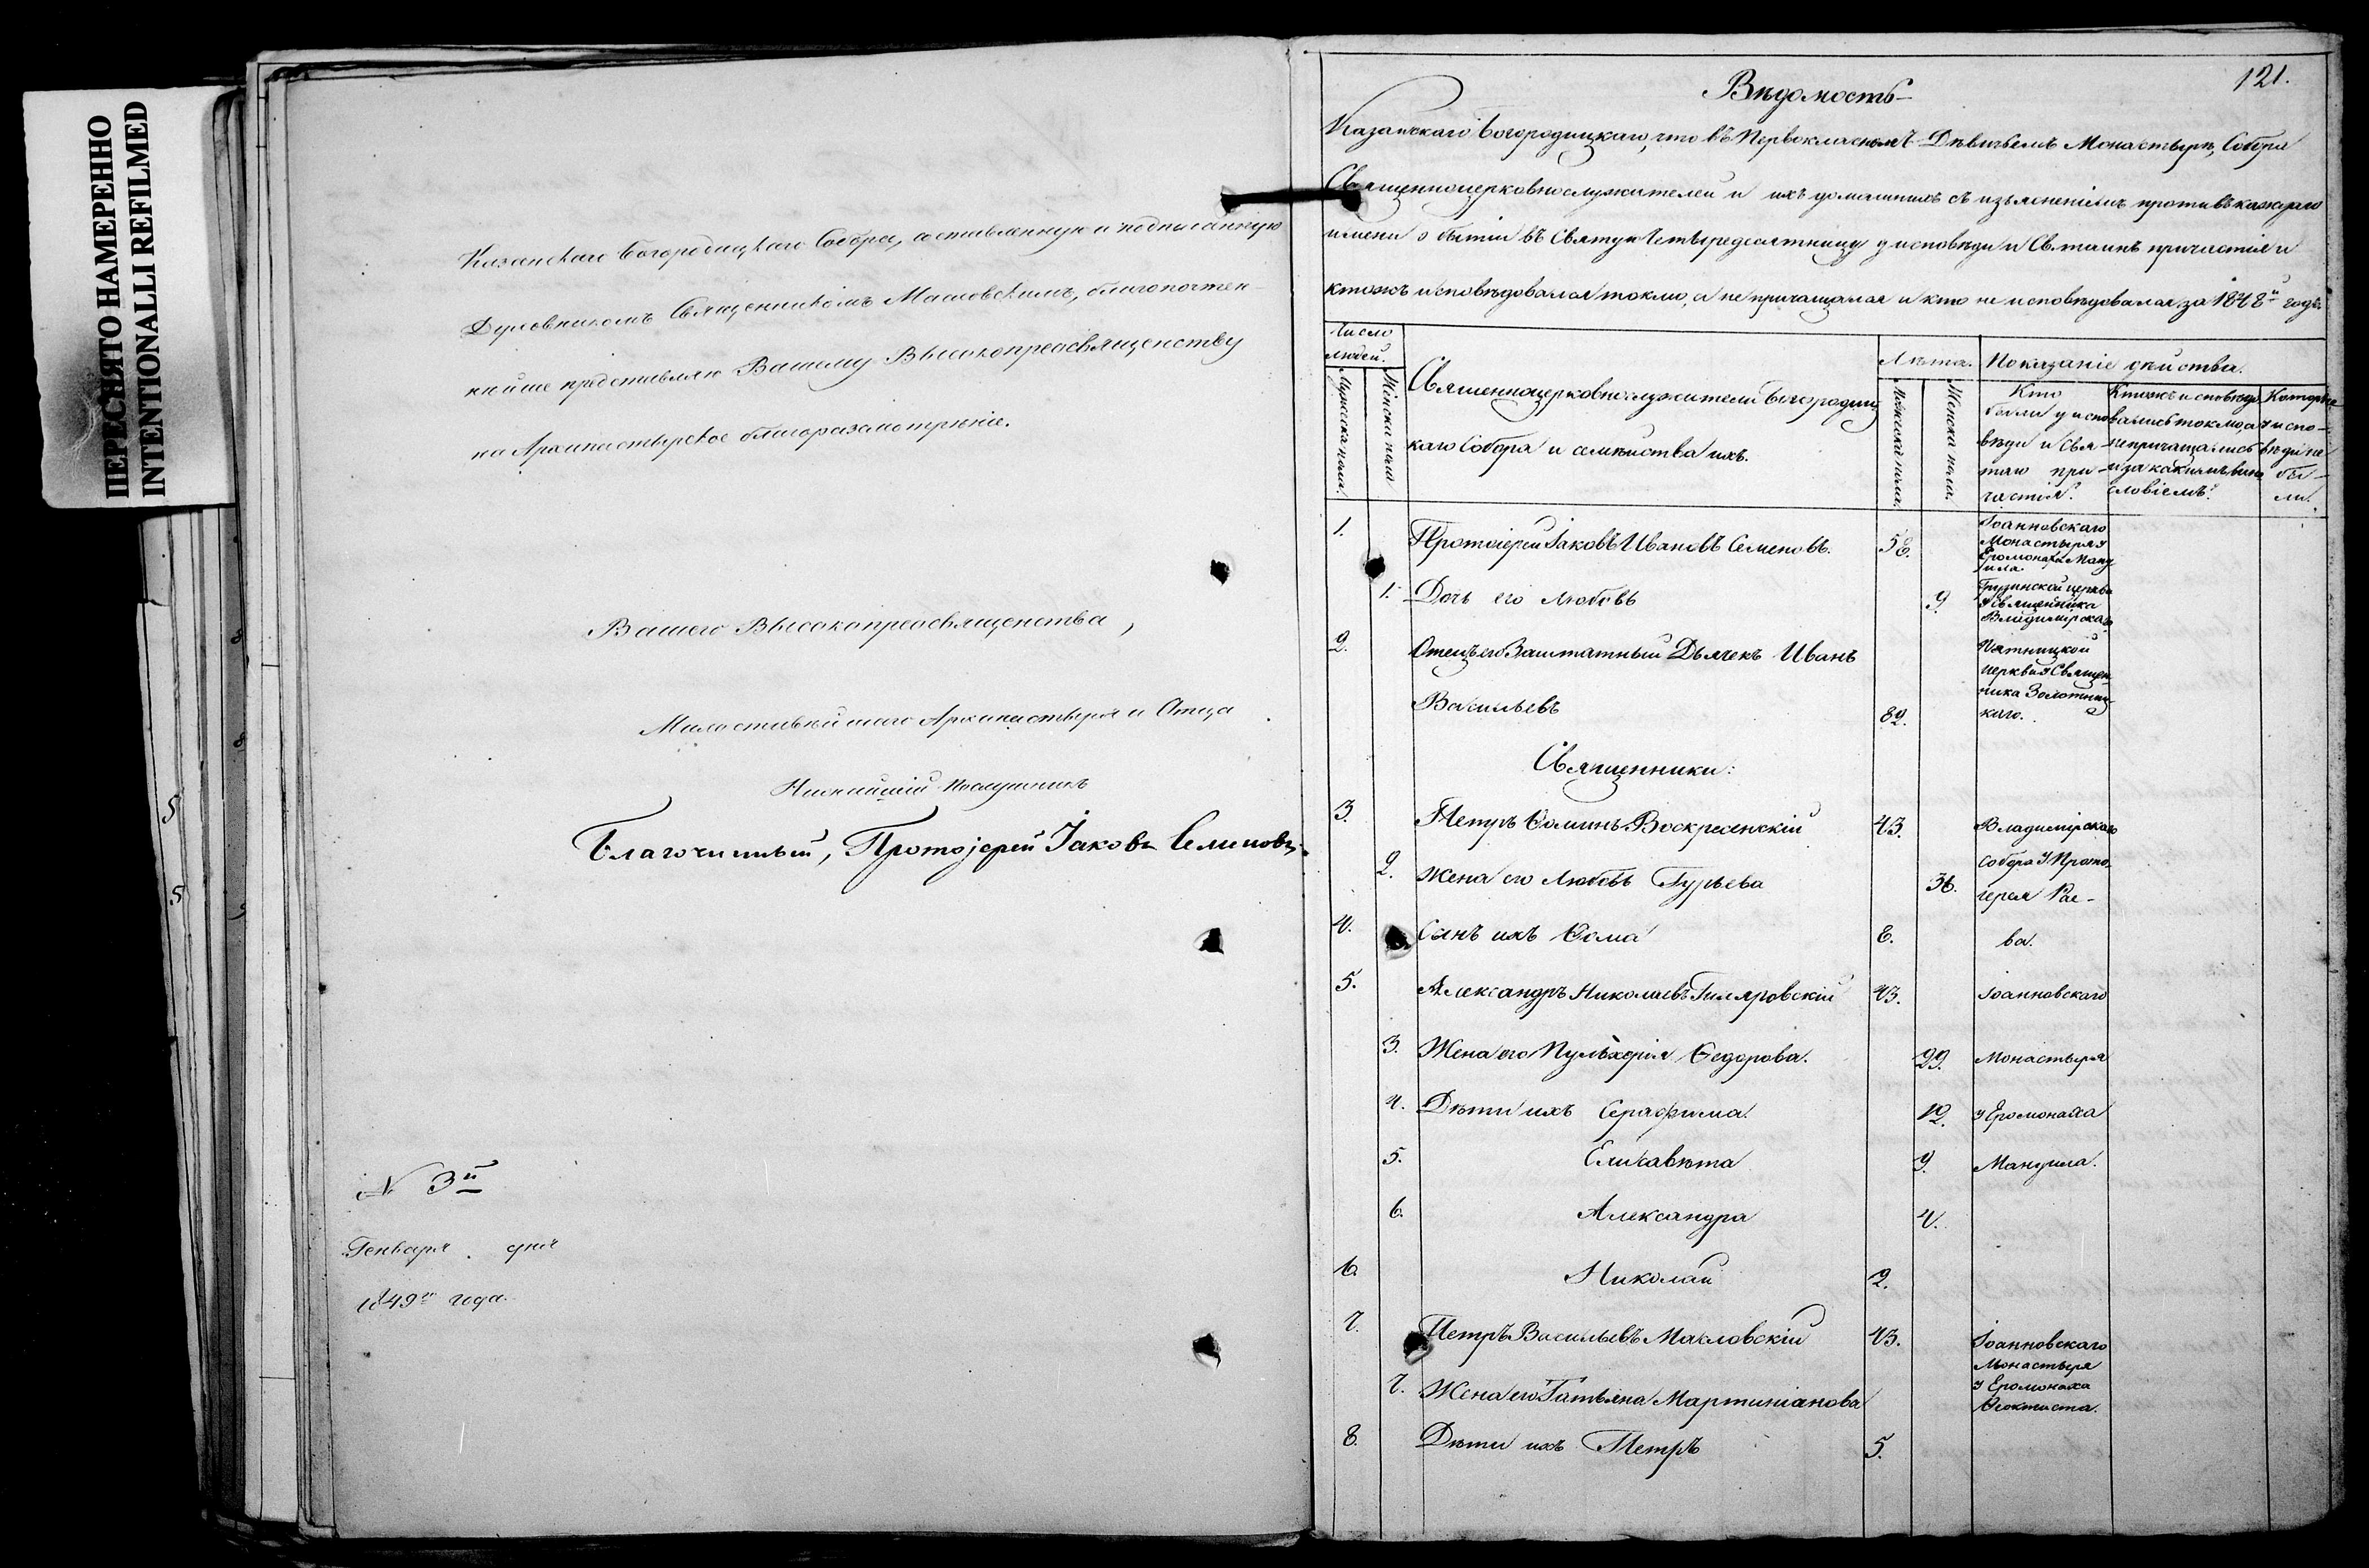 ПЕРЕСНЯТО НАМЕРЕННО
INTENTIONALLI REFILMED
Казанскаго Богородицкаго Собора, составленную и подписанную
Духовникомъ Священникомъ Масловскимъ, благопочтен-
нѣйше представляю Вашему Высокопреосвященству
на Архипастырское благоразсмотрѣніе.
Вашего Высокопреосвященства,
Милостивѣйшаго Архипастыря и Отца
Нижайшій послушникъ
Благочинный, Протоіерей Іаковъ Семеновъ
№ 3й
Генваря дня
1849го года.
121.
Вѣдомость
Казанскаго Богородицкаго, что въ Первоклассномъ Дѣвичьемъ Монастырѣ, Собора
Священноцерковнослужителей и ихъ домашнихъ съ изъясненіемъ противъ каждаго
имени о бытіи въ Святую Четыредесятницу у исповѣди и Св. таинъ причастія и
ктожъ исповѣдовался токмо, а не причащался и кто не исповѣдовался за 1848й годъ.
Число людей.
Мужеска пола.
Женска пола
Священноцерковнослужители Богородиц
каго Собора и семѣйства ихъ.
Лѣта.
Мужеска пола.
Женска пола.
Показаніе дѣйства.
Кто были у исповѣди и Святаго причастія.
Ктожъ исповѣдовались токмо, а непричащались и за какимъ винословіемъ.
Которые у исповѣди не были.
1. Протоіерей Іаковъ Ивановъ Семеновъ. 58. Іоанновскаго
Монастыря у
Еромонаха
1. Дочь его Любовь 9. Грузинской церкви
у Священника
Владимірскаго
2. Отецъ его Заштатный Дьячекъ Иванъ Пятницкой
церкви у Священ-
ника Золотниц-
Васильевъ 82. каго.
Священники:
3. Петръ Ѳоминъ Воскресенскій 43. Владимірскаго
Собора у Прото-
2. Жена его Любовь Гурьева 36. іерея Рае-
4. Сынъ ихъ Ѳома 8. ва.
5. Александръ Николаевъ Гиляровскій 43. Іоанновскаго
3. Жена его Пульхерія Ѳедорова. 29. Монастыря
4. Дѣти ихъ Серафима. 12. у Еромонаха
5. Елисавѣта 9.
6. Александра 4.
6. Николай 2.
7. Петръ Васильевъ Масловскій 43. Іоанновскаго
Монастыря
7. Жена его Татьяна Мартиніанова у Еромонаха
Ѳеоктиста.
8. Дѣти ихъ Петръ 5.